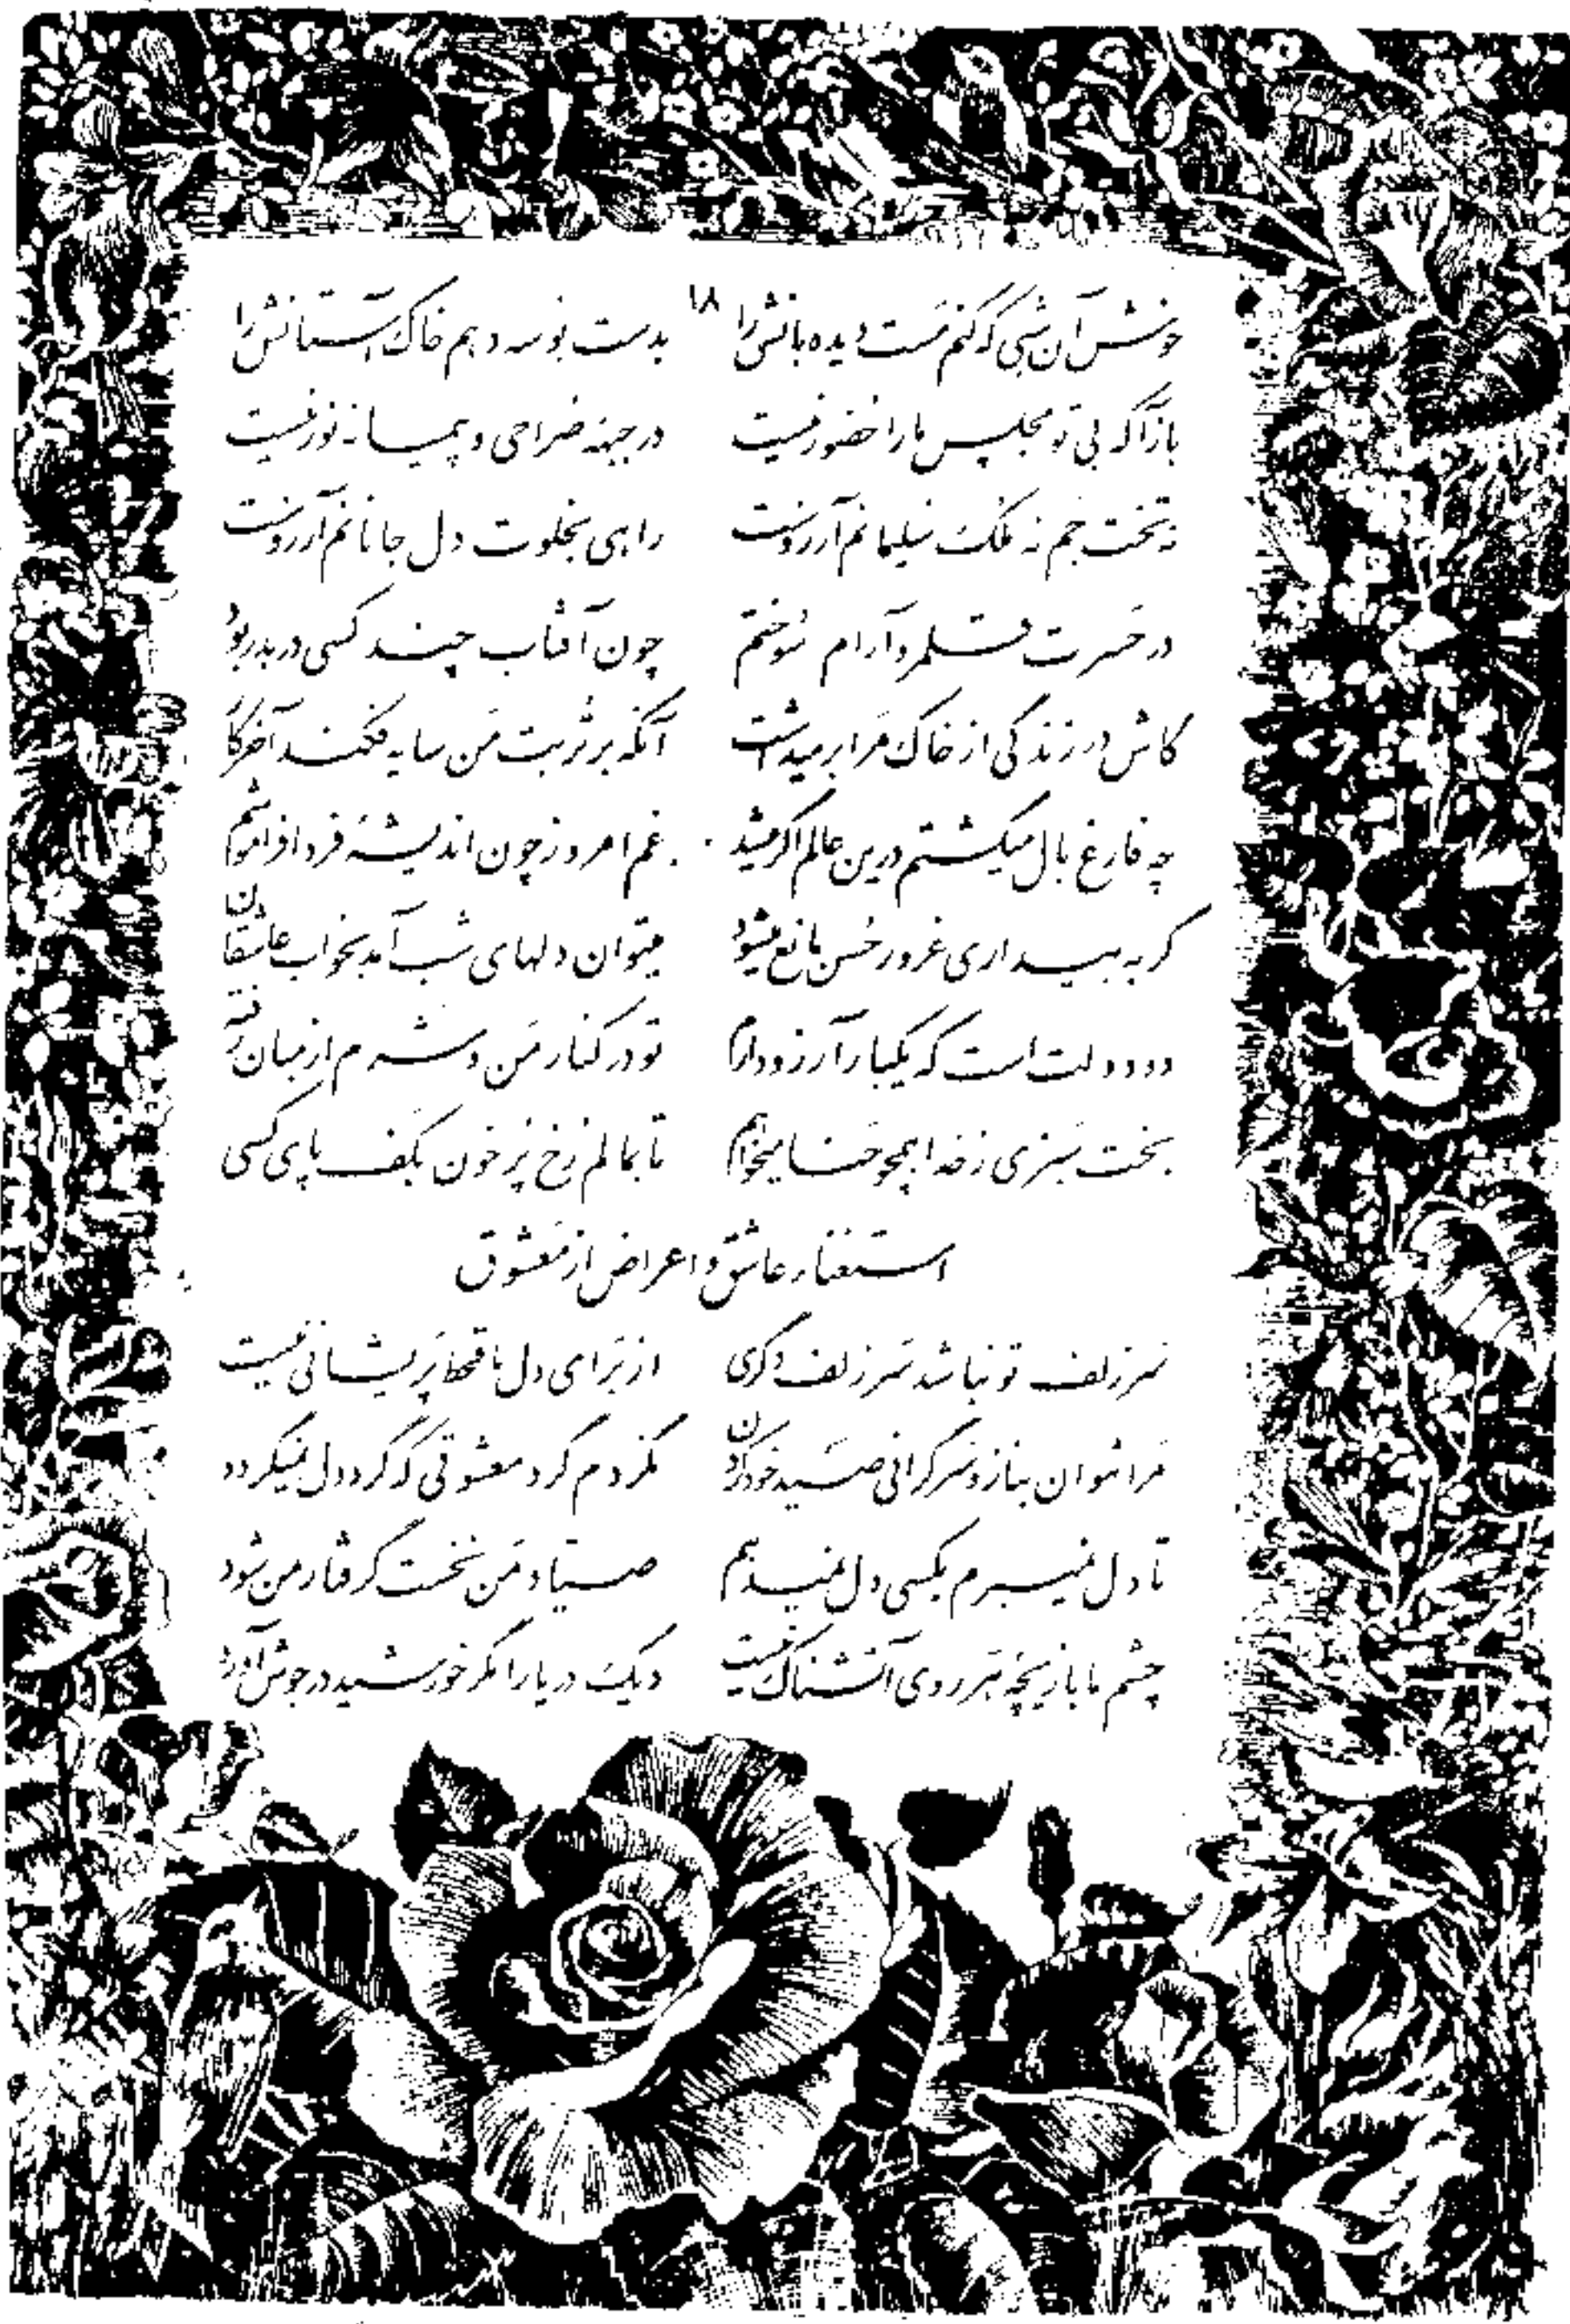 خوش آن شبی که کنم مست دیده بانش را ۱۸ بدست بوسه دهم خاک آستانش را
بازآ که بی تو مجلس ما را حضور نیست در جبهه صراحی و پیمانه نور نیست
نه تخت جم نه ملک سلیمانم آرزوست راهی بخلوت دل جانانم آرزوست
در حسرت قلمرو آرام سوختم چون آفتاب چند کسی دربدر بود
کاش در زندگی از خاک مرا برمیداشت آنکه بر تربت من سایه فکند آخر کار
چه فارغ بال میگشتم درین عالم اگر میشد غم امروز چون اندیشه فردا فراموشم
گر به بیداری غرور حسن مانع میشود میتوان دلهای شب آمد بخواب عاشقان
دو دولت است که یکبار آرزو دارم تو در کنار من و شرم از میان رفته
بخت سبزی ز خدا همچو حنا میخواهم تا بمالم رخ پر خون بکف پای کسی
استغناء عاشق و اعراض از معشوق
سر زلف تو نباشد سر زلف دگری از برای دل ما قحط پریشانی نیست
مرا نتوان بناز و سرگرانی صید خود کردن نگردم گرد معشوقی که گرد دل نمیگردد
تا دل نمیبرم بکسی دل نمیدهم صیاد من نخست گرفتار من شود
چشم ما بازیچه هر روی آتشناک نیست دیگ دریا را مگر خورشید در جوش آورد